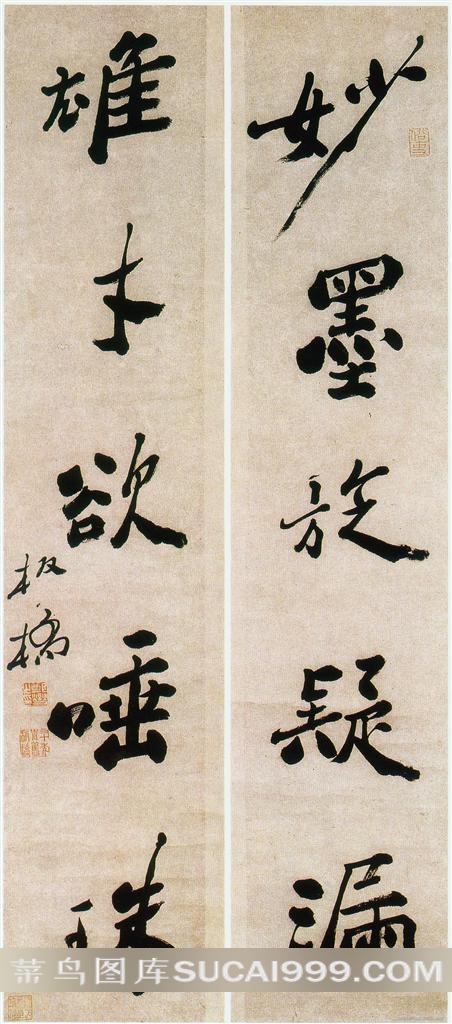 妙墨疑漏
雄才欲唾珠
板橋
菜鸟图库SUCAI999.COM